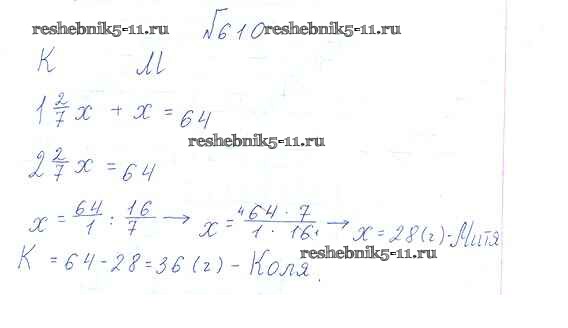 №610
reshebnik5-11.ru reshebnik5-11.ru
К М
1 2/7 x + x = 64
reshebnik5-11.ru
2 2/7 x = 64
x = 64/1 : 16/7 → x = ⁴64 · 7 / 1 · 16₁ → x = 28 (г) - Митя
К = 64 - 28 = 36 (г) - Коля.
reshebnik5-11.ru